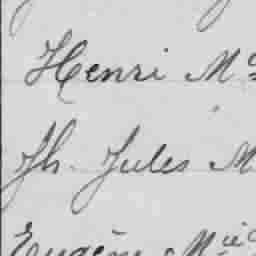 Henri M
Jh. Jules M
Eugène Mie